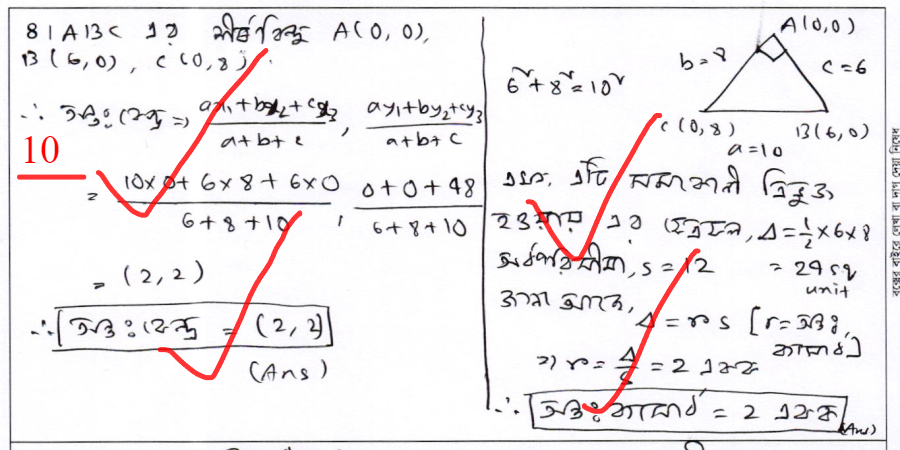 8। ABC এর শীর্ষবিন্দু A(0,0),
B(6,0), C(0,8).
∴ অন্তঃকেন্দ্র ⇒ ax₁+bx₂+cx₃ / a+b+c , ay₁+by₂+cy₃ / a+b+c
10
= 10×0+6×8+6×0 / 6+8+10 , 0+0+48 / 6+8+10
= (2,2)
∴ অন্তঃকেন্দ্র = (2,2)
(Ans)
A(0,0)
b=8
c=6
6²+8²=10²
C(0,8)
B(6,0)
a=10
এখন, এটি সমকোণী ত্রিভুজ
হওয়ায় এর ক্ষেত্রফল, Δ=½×6×8
অর্ধপরিসীমা, s=12
= 24 sq unit
জানা আছে,
Δ = rs [r=অন্তঃব্যাসার্ধ]
⇒ r = Δ/s = 2 একক
∴ অন্তঃব্যাসার্ধ = 2 একক
(Ans)
বক্সের বাইরে লেখা বা দাগ দেয়া নিষেধ